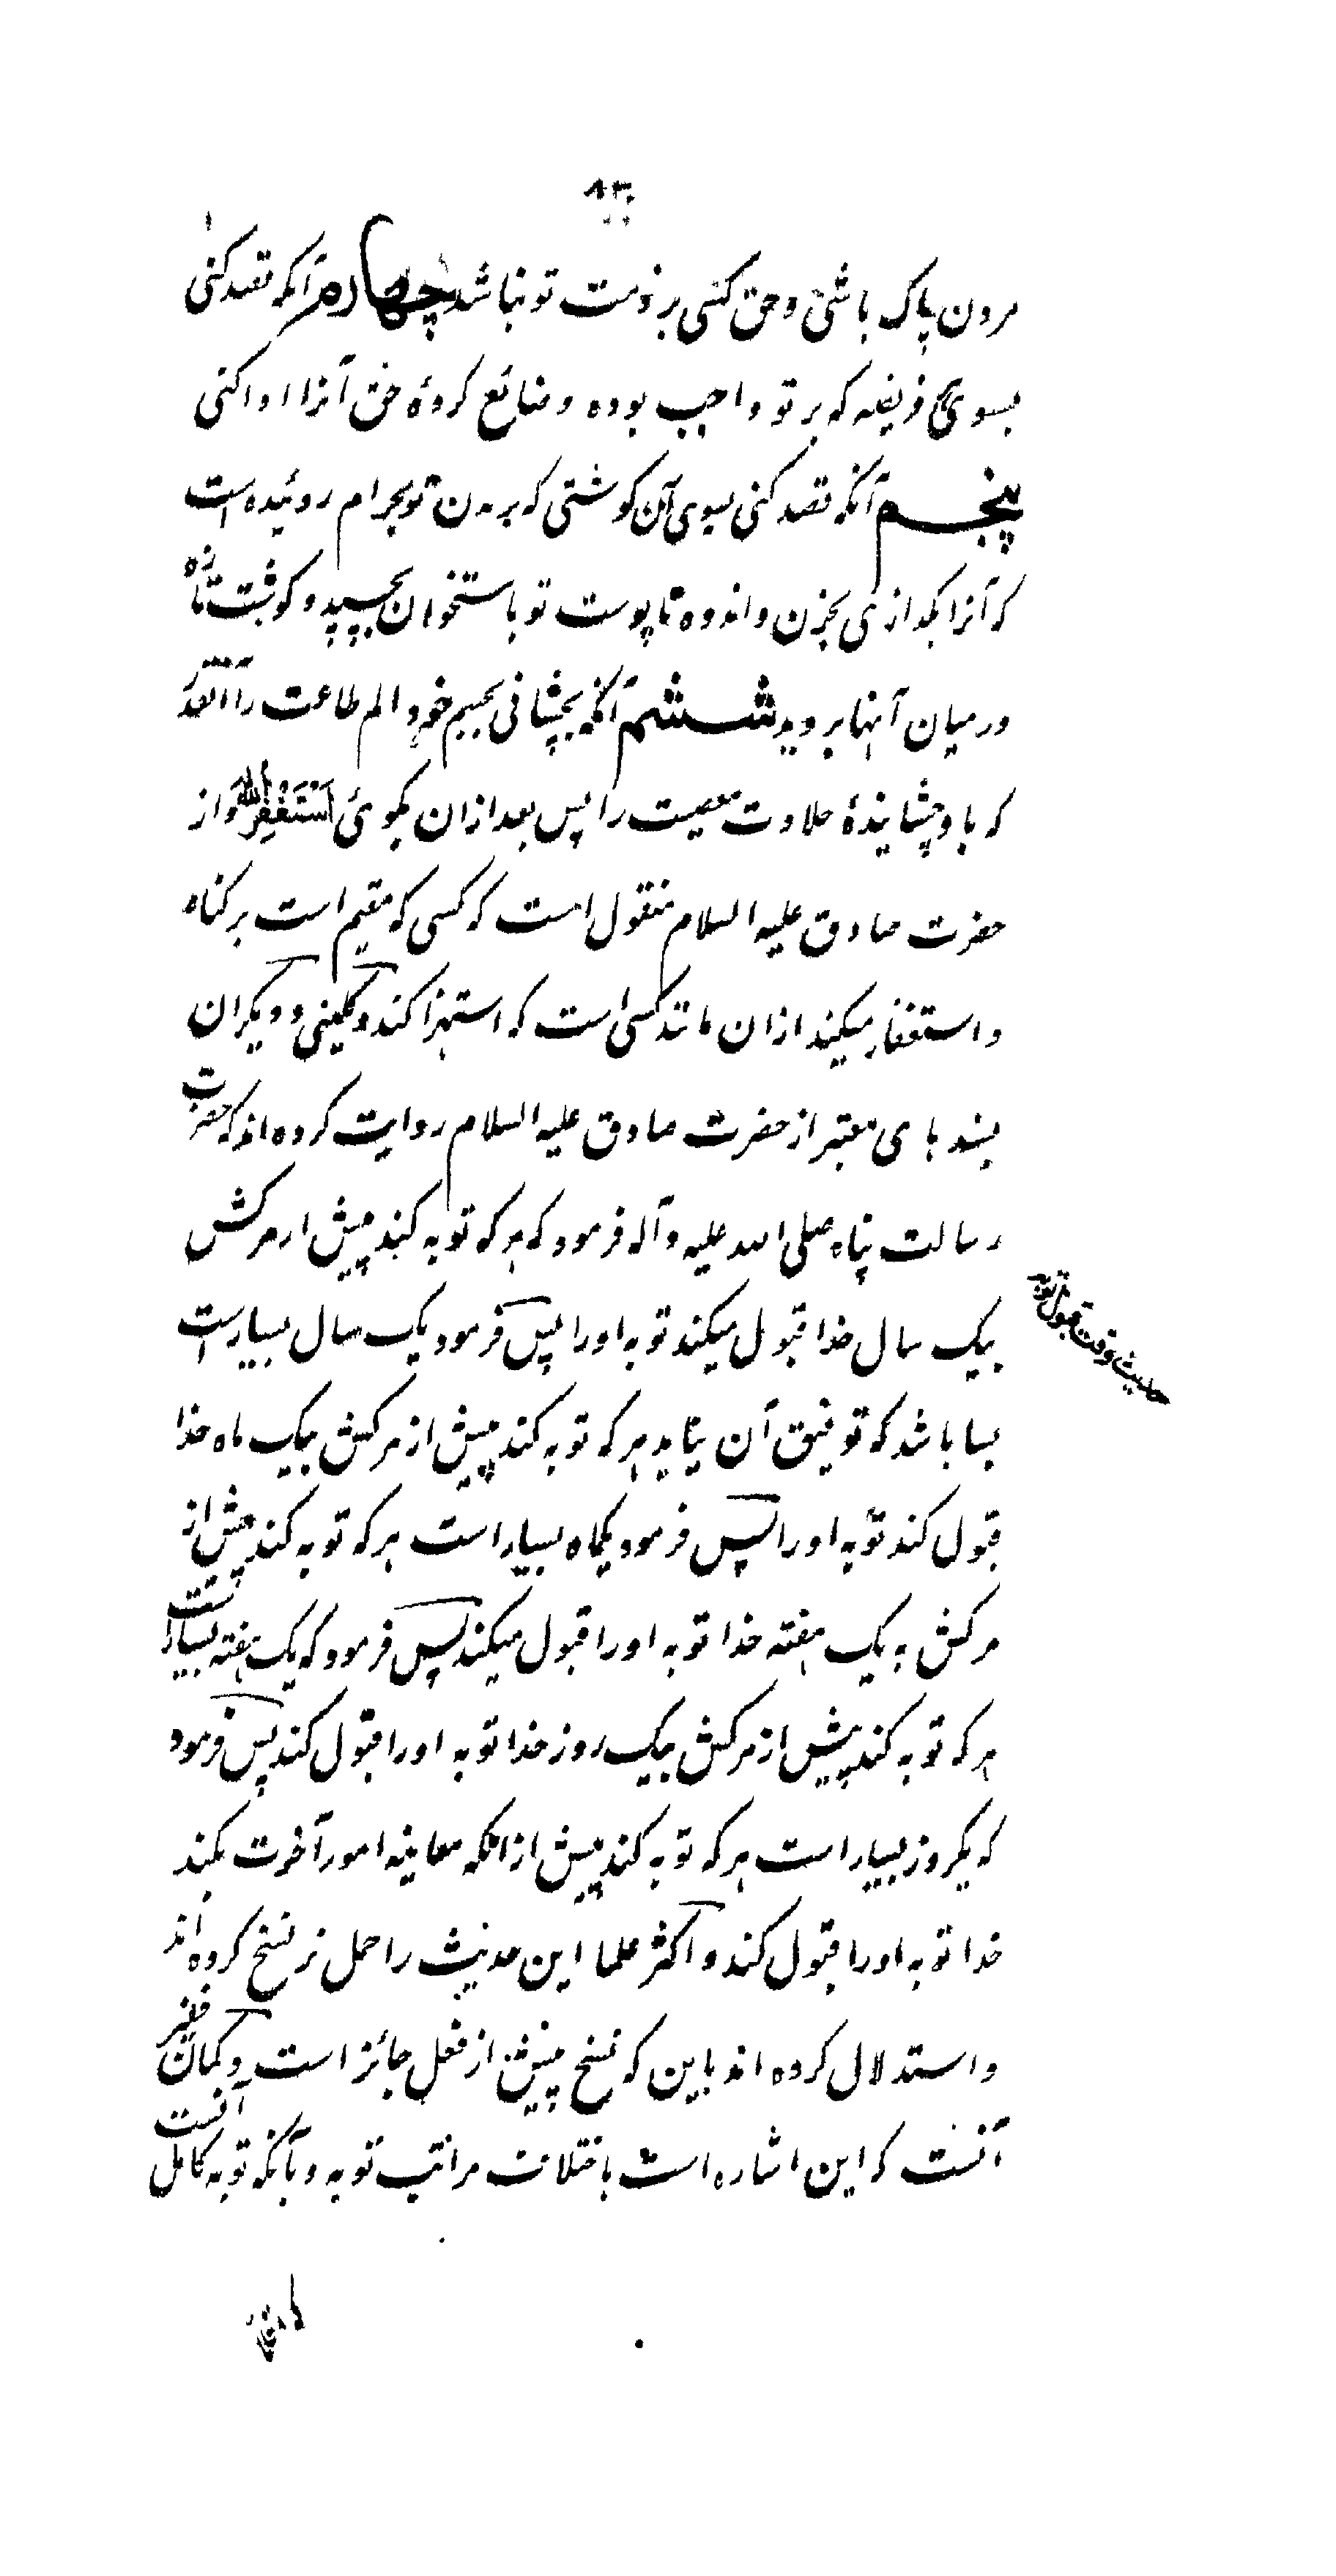 ۸۳
مردن پاک باشی و حق کسی بر ذمت تو نباشد چهارم آنکه قصد کنی
بسوی فریضه که بر تو واجب بوده و ضائع کردهٔ حق آنرا ادا کنی
پنجم آنکه قصد کنی بسوی آن گوشتی که بر بدن تو بحرام روئیده است
که آنرا بگدازی بحزن و اندوه تا پوست تو باستخوان بچسپد و گوشت تازه
در میان آنها بروید ششم آنکه بچشانی بجسم خود الم طاعت را آنقدر
که باو چشانیدهٔ حلاوت معصیت را پس بعد ازان بگوئی اَسْتَغْفِرُ اللهَ و از
حضرت صادق علیه السلام منقول است که کسی که مقیم است بر گناه
و استغفار میکند ازان مانند کسی است که استهزا کند و کلینی و دیگران
بسند های معتبر از حضرت صادق علیه السلام روایت کرده اند که حضرت
رسالت پناه صلی الله علیه و آله فرمود که هر که توبه کند پیش از مرگش
بیک سال خدا قبول میکند توبه او را پس فرمود یک سال بسیار است
بسا باشد که توفیق آن نیابد هر که توبه کند پیش از مرگش بیک ماه خدا
قبول کند توبه او را پس فرمود یکماه بسیار است هر که توبه کند پیش از
مرگش به یک هفته خدا توبه او را قبول میکند پس فرمود که یک هفته بسیار است
هر که توبه کند پیش از مرگش بیک روز خدا توبه او را قبول کند پس فرمود
که یکروز بسیار است هر که توبه کند پیش ازانکه معاینه امور آخرت بکند
خدا توبه او را قبول کند و اکثر علما این حدیث را حمل بر نسخ کرده اند
و استدلال کرده اند باین که نسخ پیش از فعل جائز است و گمان فقیر
آنست که این اشاره است باختلاف مراتب توبه و بآنکه توبه کامل آنست
حدیث وقت قبول توبه